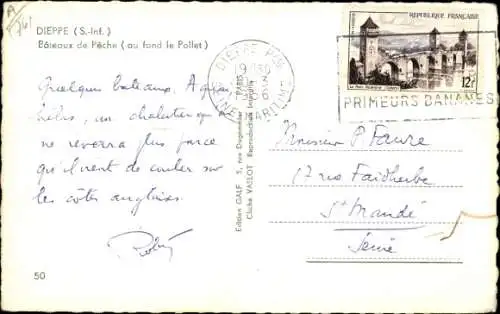 DIEPPE (S.-Inf.)
Bâteaux de Pêche (au fond le Pollet)
Quelques bateaux. A ques
hélas, un chalutier qu'on
ne reverra plus parce
qu'il vient de couler sur
les côtes anglaises.
50
Edition GALF
Cliché VASLOT Reproduction Interdite
DIEPPE
SEINE MARITIME
REPUBLIQUE FRANÇAISE
12F
PRIMEURS BANANES
Monsieur P. Faure
17 rue Faidherbe
St Mandé
Seine